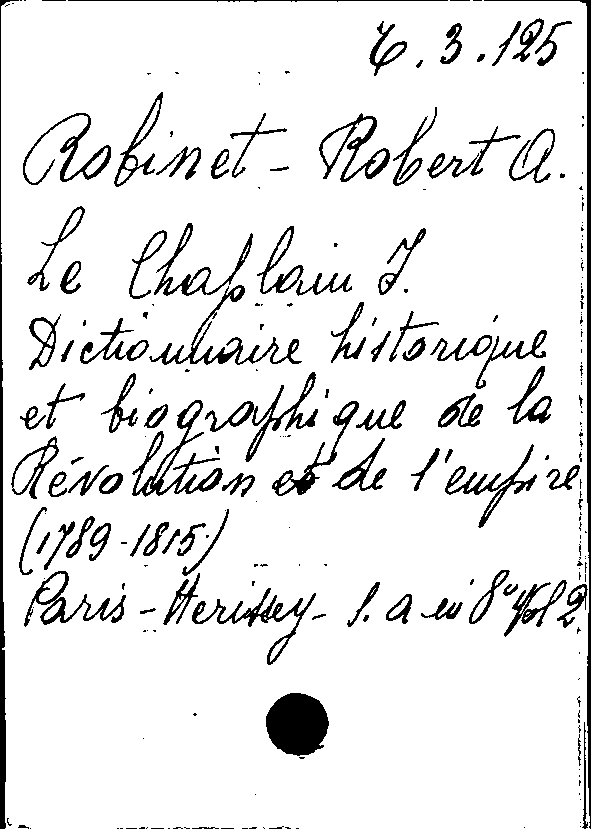 6.3.125
Robinet - Robert A.
Le Chaplain J.
Dictionnaire historique
et biographique de la
Révolution et de l'empire
(1789-1815)
Paris - Herissey - s. a in 8° Vol 2